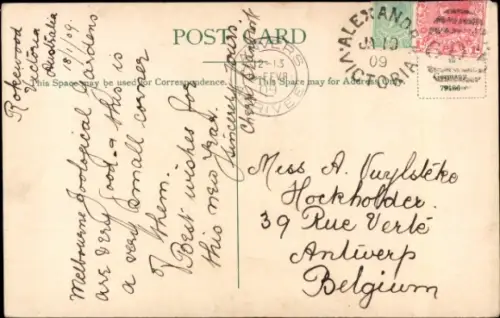 POST CARD
This Space may be used for Correspondence.
This Space may be used for Address Only.
Rokewood
Victoria
Australia
18/1/09.
Melbourne Zoological Gardens
are very good - this is
a very small corner
of them.
Best wishes for
this new Year.
Sincerely yours.
ALEXANDRA
JA 19
09
VICTORIA
79166
Miss A. Vuylstéke
Hockholder.
39 Rue Verté
Antwerp
Belgium